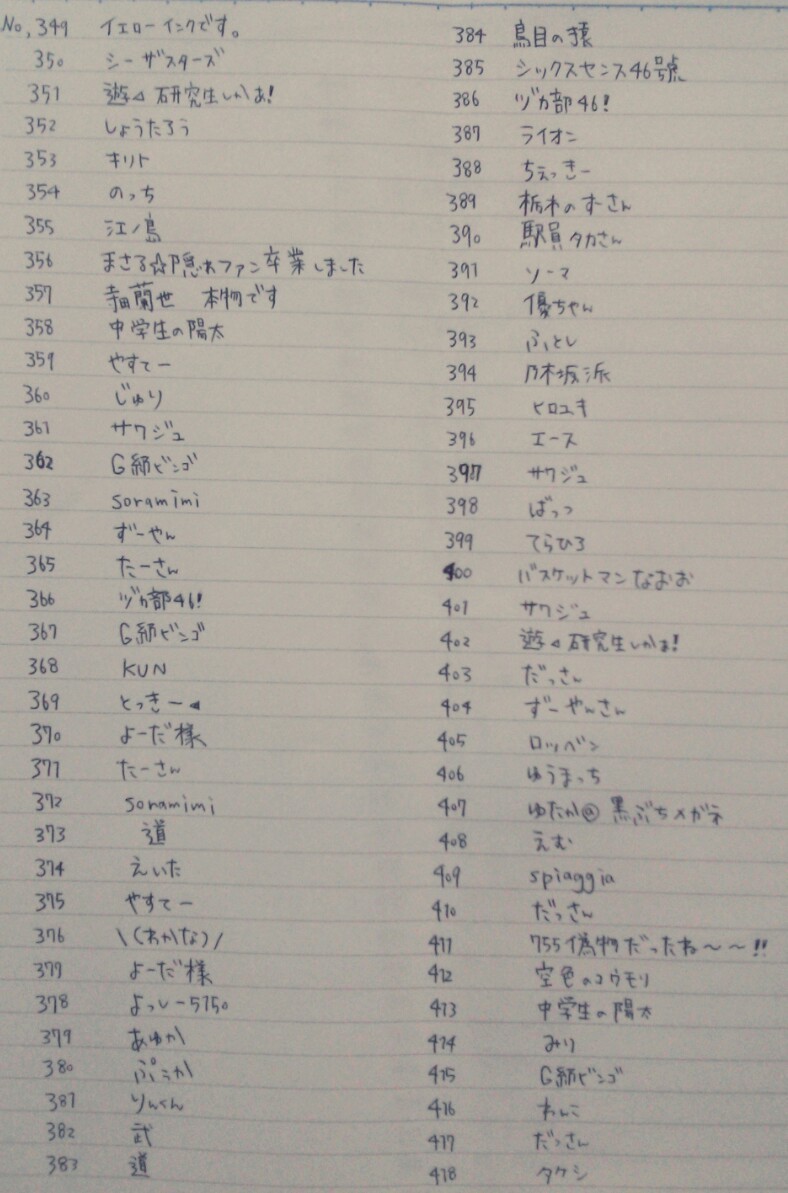 No, 349 イエローインクです。
350 シーザスターズ
351 遊⊿研究生しかぁ!
352 しょうたろう
353 キリト
354 のっち
355 江ノ島
356 まさる☆隠れファン卒業しました
357 寺田蘭世 本物です
358 中学生の陽太
359 やすてー
360 じゅり
361 サワジュ
362 G級ビンゴ
363 soramimi
364 ずーやん
365 たーさん
366 ヅカ部46!
367 G級ビンゴ
368 KUN
369 とっきー⊿
370 よーだ様
371 たーさん
372 soramimi
373 道
374 えいた
375 やすてー
376 \(わかな)/
377 よーだ様
378 よっしー5750
379 あゆか
380 ぷぅか
381 りんくん
382 武
383 道
384 鳥目の猿
385 シックスセンス46号
386 ヅカ部46!
387 ライオン
388 ちぇっきー
389 栃木のずーさん
390 駅員タカさん
391 ソーマ
392 優ちゃん
393 ふとし
394 乃木坂派
395 ヒロユキ
396 エース
397 サワジュ
398 ばっつ
399 てらひろ
400 バスケットマンなおお
401 サワジュ
402 遊⊿研究生しかぁ!
403 だっさん
404 ずーやんさん
405 ロッベン
406 ゆうまっち
407 ゆたか@黒ぶちメガネ
408 えむ
409 spiaggia
410 だっさん
411 755偽物だったね〜〜!!
412 空色のコウモリ
413 中学生の陽太
414 みり
415 G級ビンゴ
416 わんこ
417 だっさん
418 タケシ